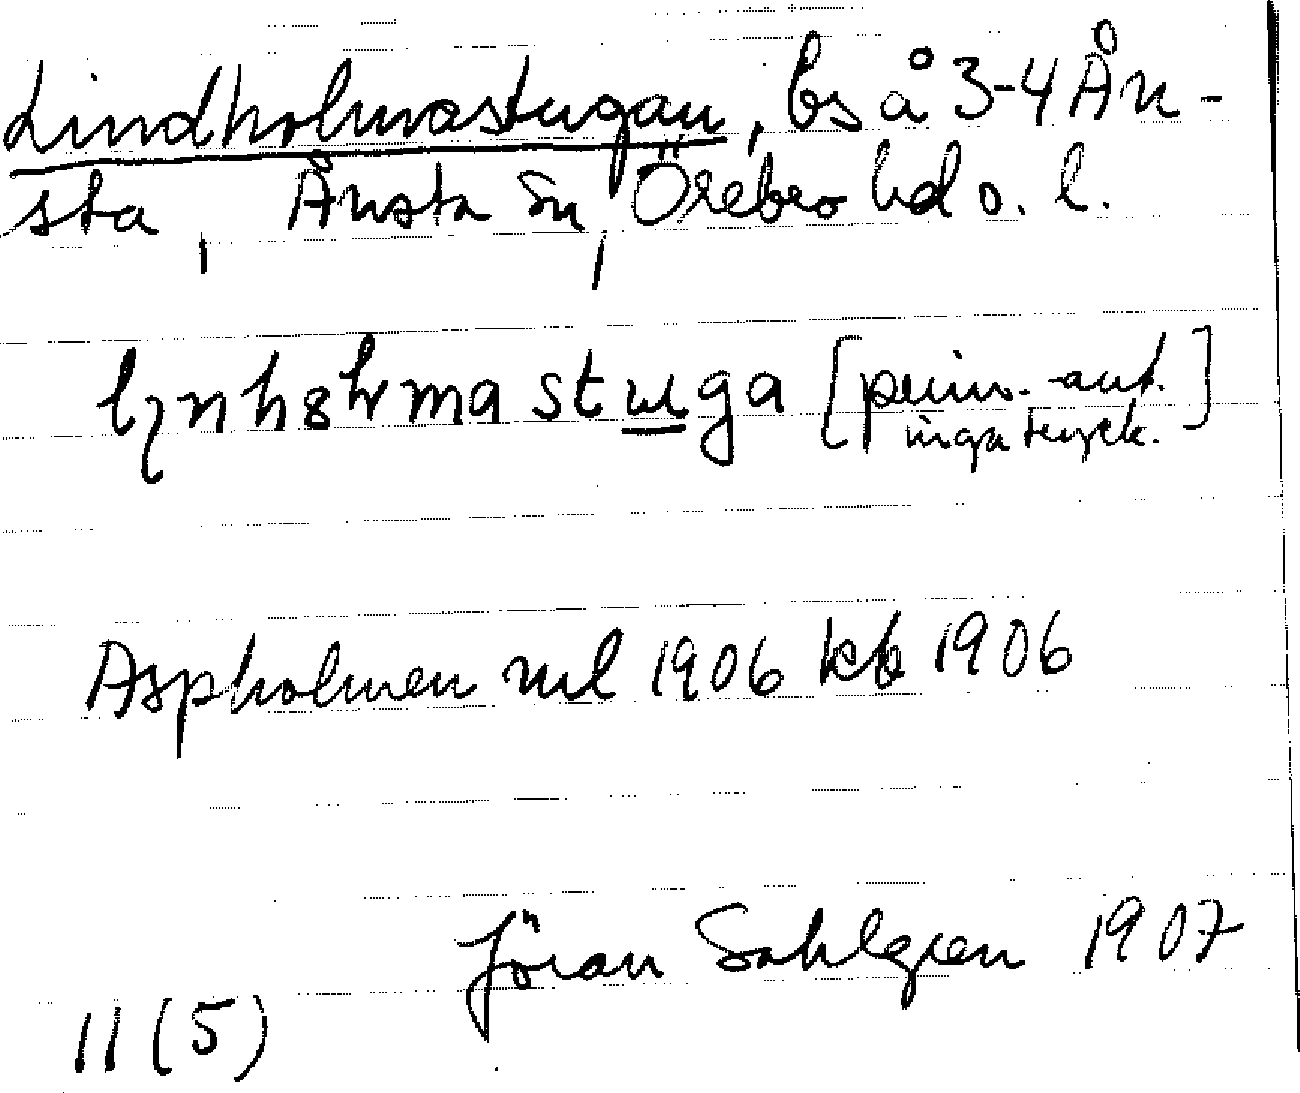 Lindholmastugan, bs å 3-4 Ån-
sta, Ånsta sn, Örebro hd o. l.
[prim.-aut.
inga tryck.]
Aspholmen ml 1906 kb 1906
Jöran Sahlgren 1907
11 (5)